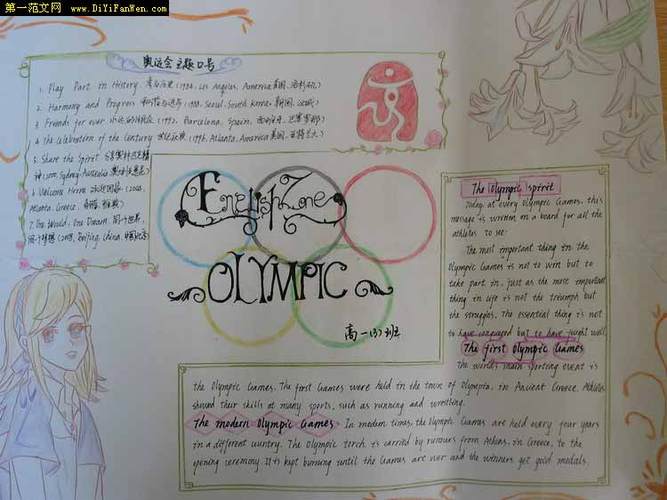 第一范文网
www.DiYiFanWen.com
奥运会主题口号
1. Play Part in History 参与历史 (1984, Los Angeles, America 美国, 洛杉矶)
2. Harmony and Progress 和谐与进步 (1988, Seoul, South Korea, 韩国, 汉城)
3. Friends for ever 永远的朋友 (1992, Barcelona, Spain, 西班牙, 巴塞罗那)
4. The Celebration of the Century 世纪庆典 (1996, Atlanta, America 美国, 亚特兰大)
5. Share the Spirit 分享奥林匹克精
神 (2000, Sydney, Australia
6. Welcome Home (2004,
Atlanta, Greece,
7. One World, One Dream 同一个世界,
同一个梦想 (2008, Beijing, China,
English Zone
OLYMPIC
高一(3)班
The Olympic spirit
Today at every Olympic Games, this
message is written on a board for all the
athletes to see:
The most important thing in the
Olympic Games is not to win but to
take part in, just as the most important
thing in life is not the triumph but
the struggles. The essential thing is not
to have conquered but to have fought well.
The first Olympic Games
the world's main sporting event is
the Olympic Games. The first Games were held in the town of Olympia, in Ancient Greece. Athletes
showed their skills at many sports, such as running and wrestling.
The modern Olympic Games: In modern times, the Olympic Games are held every four years
in a different country. The Olympic torch is carried by runners from Athens, in Greece, to the
opening ceremony. It is kept burning until the Games are over and the winners get gold medals.